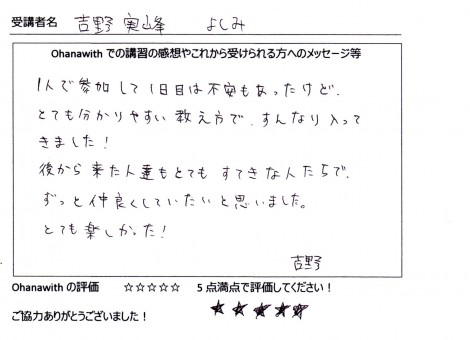 受講者名 吉野 実峰 よしみ
Ohanawith での講習の感想やこれから受けられる方へのメッセージ等
1人で参加して1日目は不安もあったけど、
とても分かりやすい教え方で、すんなり入って
きました!
後から来た人達もとても すてきな人たちで、
ずっと仲良くしていたいと思いました。
とても楽しかった!
吉野
Ohanawith の評価 ☆☆☆☆☆ 5 点満点で評価してください!
★★★★★
ご協力ありがとうございました!